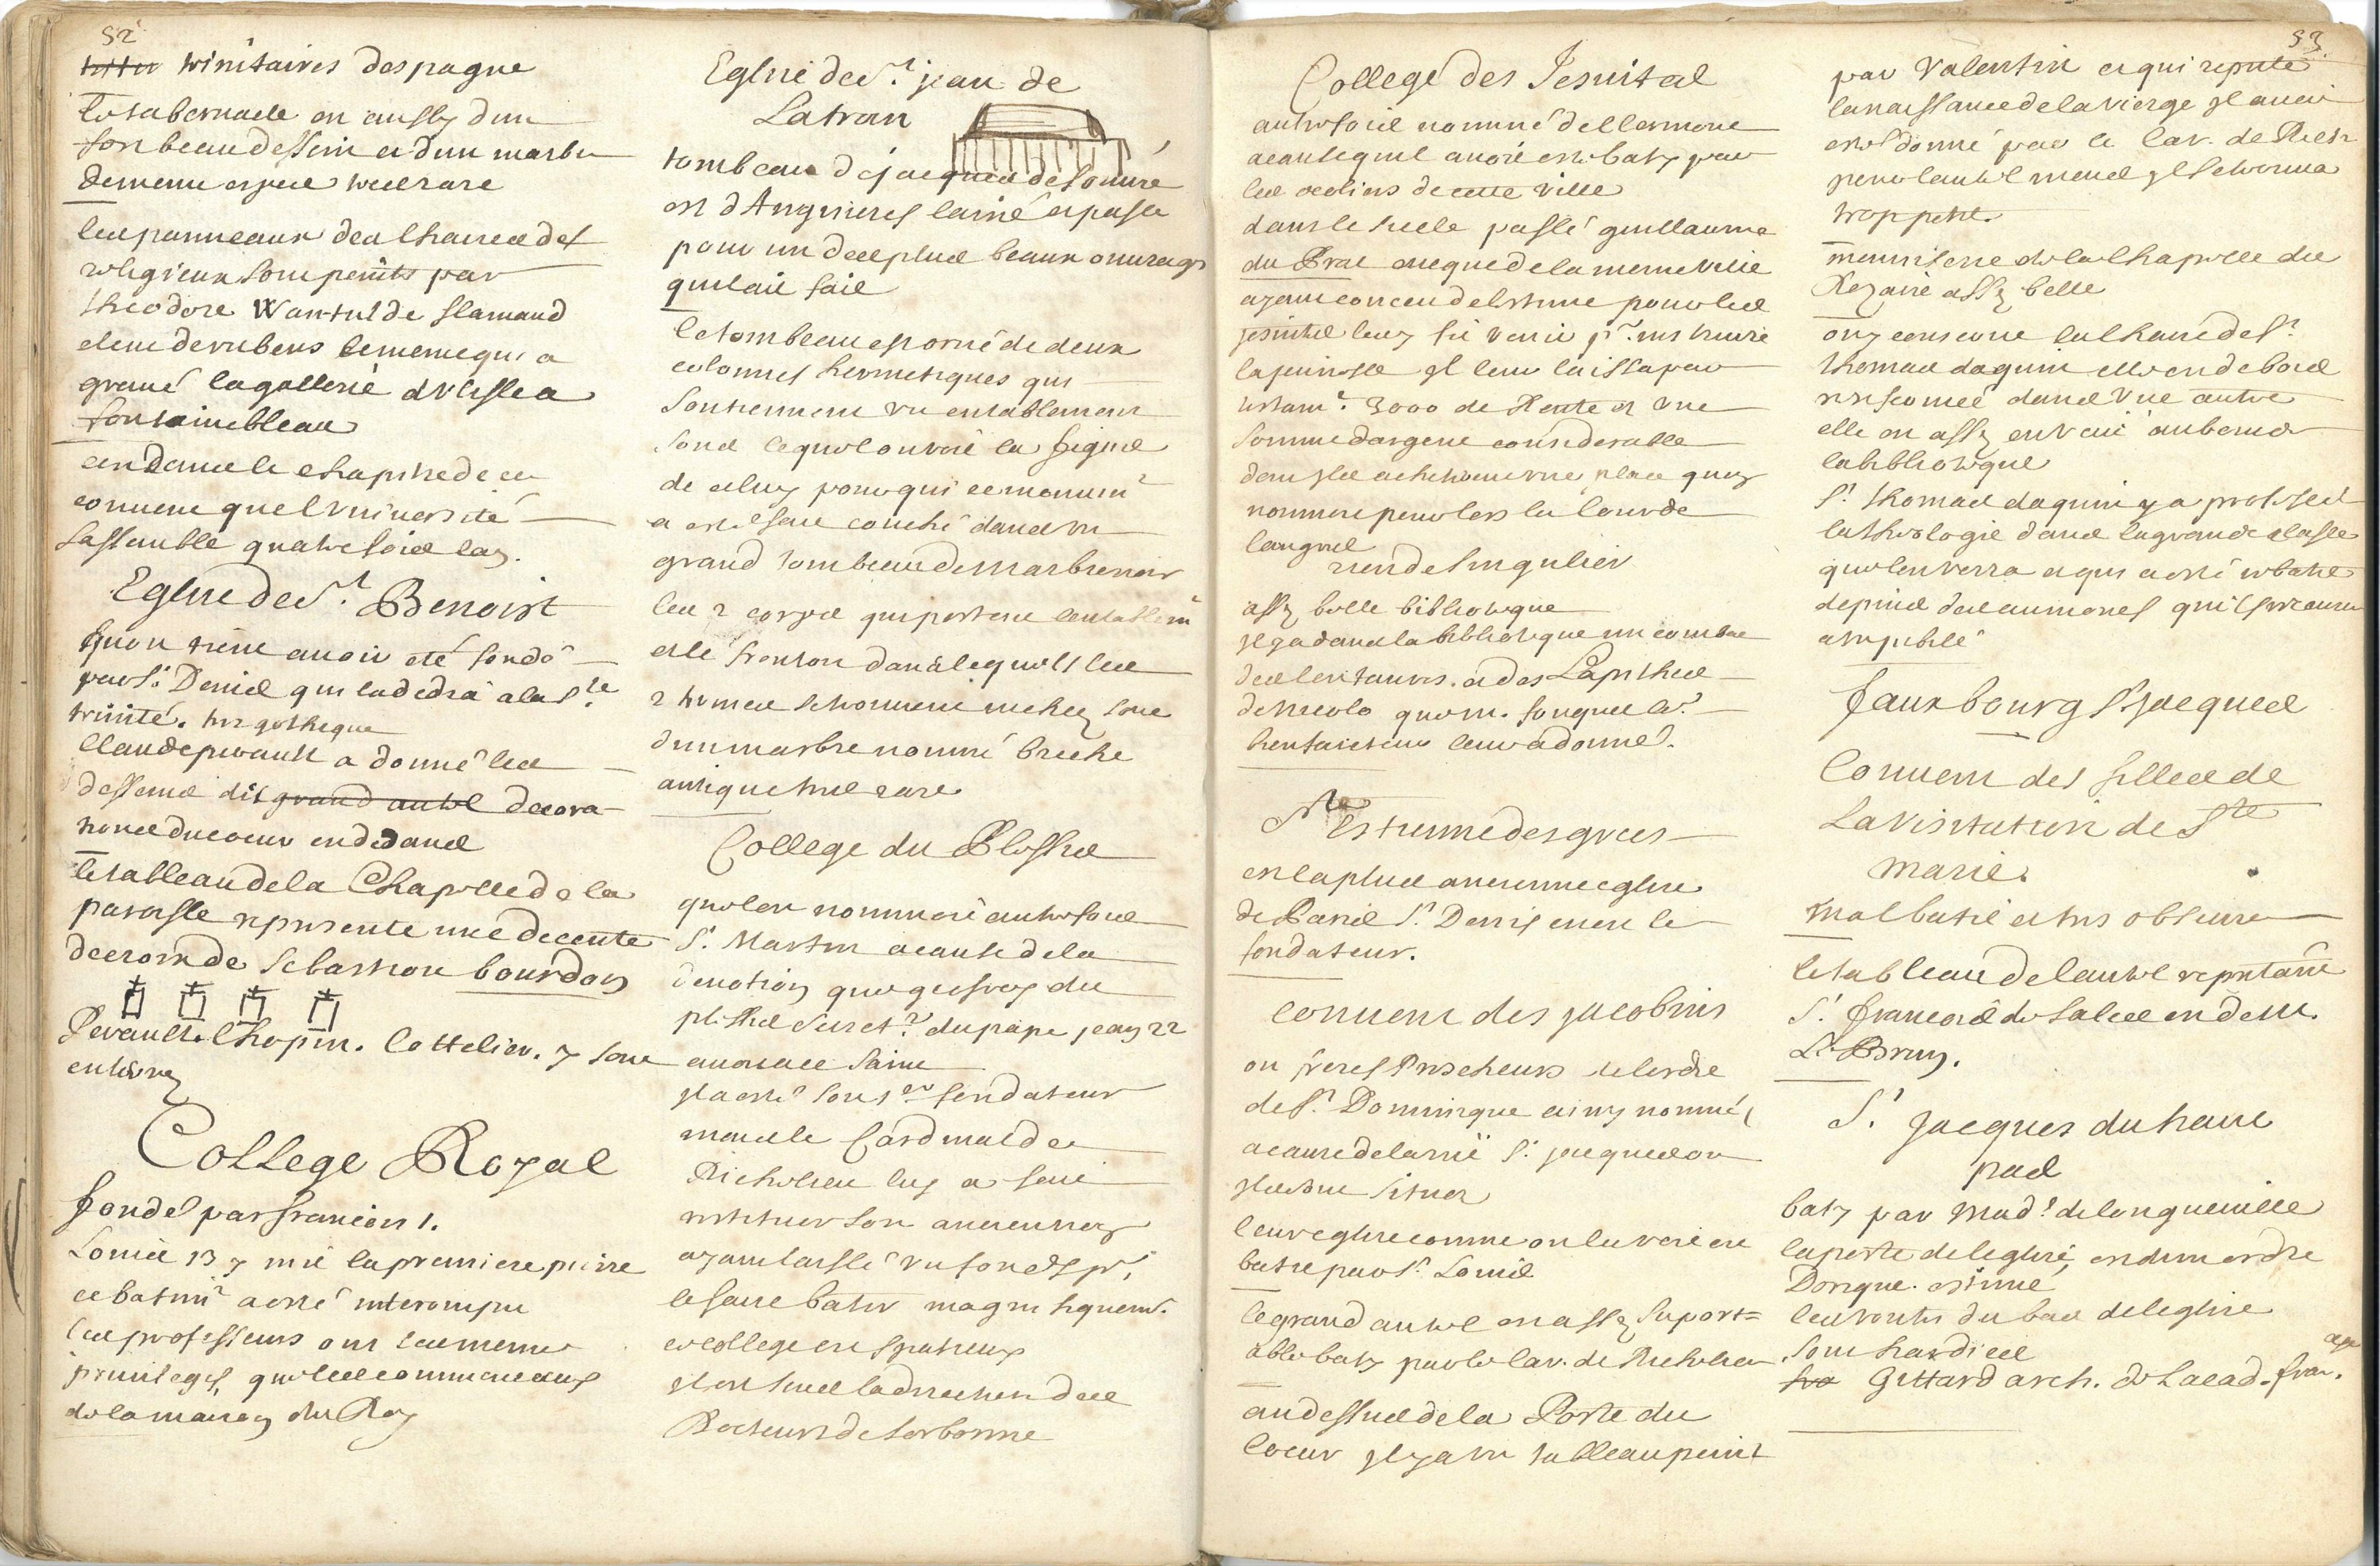 52
trinitaires despagne
le tabernacle est aussy dun
fort beau dessein et dun marbre
de meme espece tres rare
les panneaux des chaires des
religieux sont peints par
theodore Wantulde flamand
eleve de rubens le meme qui a
gravé la gallerie dulisse a
fontainebleau
cest dans le chapitre de ce
couvent que luniversité
sassemble quatre fois lan.
Eglise de St Benoist
quon tient avoir eté fondé
par St Denis qui la dedia a la Ste
trinité. tres gotheque
Claude perault a donné les
desseins des grand autel decora-
tions du coeur en dedans
le tableau de la Chapelle de la
paroisse represente une decente
de croix de sebastien bourdon
Perault. Chopin. Cottelier. y sont
enterez
College Royal
fondé par francois 1.
Louis 13 y mit la premiere pierre
ce batimt a esté interompu
les professeurs ont les memes
privileges, que les commenceaux
de la maison du Roy
Eglise de St jean de
Latran
tombeau de jacques de souvré
est dAnguieres lainé et passe
pour un des plus beaux ouvrages
quil ait fait
le tombeau est orné de deux
colonnes hermetiques qui
soutiennent un entablement
sous lequel on voit la figure
de celuy pour qui ce monumt
a esté fait couché dans un
grand tombeau de marbre noir
les 2 corps qui portent lentablemt
et le fronton dans lequel les
2 termes se trouvent nichez sont
dun marbre nommé breche
antique tres rare
College du Plessis
que lon nommoit autrefois
St Martin a cause de la
devotion que geofroy du
plessis secret.re du pape jean 22
avoit a ce saint
il a esté son 1er fondateur
mais le Cardinal de
Richelieu luy a fait
restituer son ancien nom
ayant laissé un fonds pr.
le faire batir magnifiquemt.
ce college est spatieux
il est sous la direction des
Docteurs de sorbonne
53.
College des Jesuites
autrefois nommé de Clermont
a cause quil avoit esté baty par
les ecoliers de cette ville
dans le siecle passé guillaume
du Prat eveque de la meme ville
ayant conceu de lestime pour les
jesuites les y fit venir pr. instruire
la jeunesse il leur laissa par
testamt. 3000 de Rente et une
somme dargent considerable
dont ils acheterent une place quon
nommoit pour lors la Cour de
langres
rien de singulier
assez belle biblioteque
il y a dans la biblioteque un combat
des Centaures. et des Lapithes
de nicolo que m. fouquet sr.
leur a donné.
Ste Estienne des grecs
est la plus ancienne eglise
de Paris St Denis en est le
fondateur.
couvent des jacobins
ou freres Prescheurs de lordre
de St Dominique ainsy nommés
a cause de la rue St jacques ou
ils sont situez
leur eglise comme on la voit a esté
batie par St Louis
le grand autel est assez suport=
able baty par le Car. de Richelieu
au dessus de la Porte du
Coeur il y a un tableau peint
par Valentin et qui represente
la naissance de la vierge il avoit
esté donné par le Car. de Rich
pour lautel mais il se trouva
trop petit.
menuiserie de la Chapelle du
Rozaire assez belle
on y conserve la chaire de St
thomas daquin elle est de bois
renfermée dans une autre
elle est assez en vue au bout de
la biblioteque
St thomas daquin y a professé
la theologie dans la grande classe
que lon verra et qui a esté rebatie
depuis des aumones qui furent
au jubilé
faux bourg St jacques
Couvent des filles de
La visitation de Ste
marie.
mal batie et tres obscure
le tableau de lautel representant
St francois de Sales est de Mr.
Le Brun.
St Jacques du haut
pas
baty par Made. de longueville
la porte de leglise est dun ordre
Dorique. estimé
les voutes du bas de leglise
sont hardies
Gittard arch. de Lacad. fran.